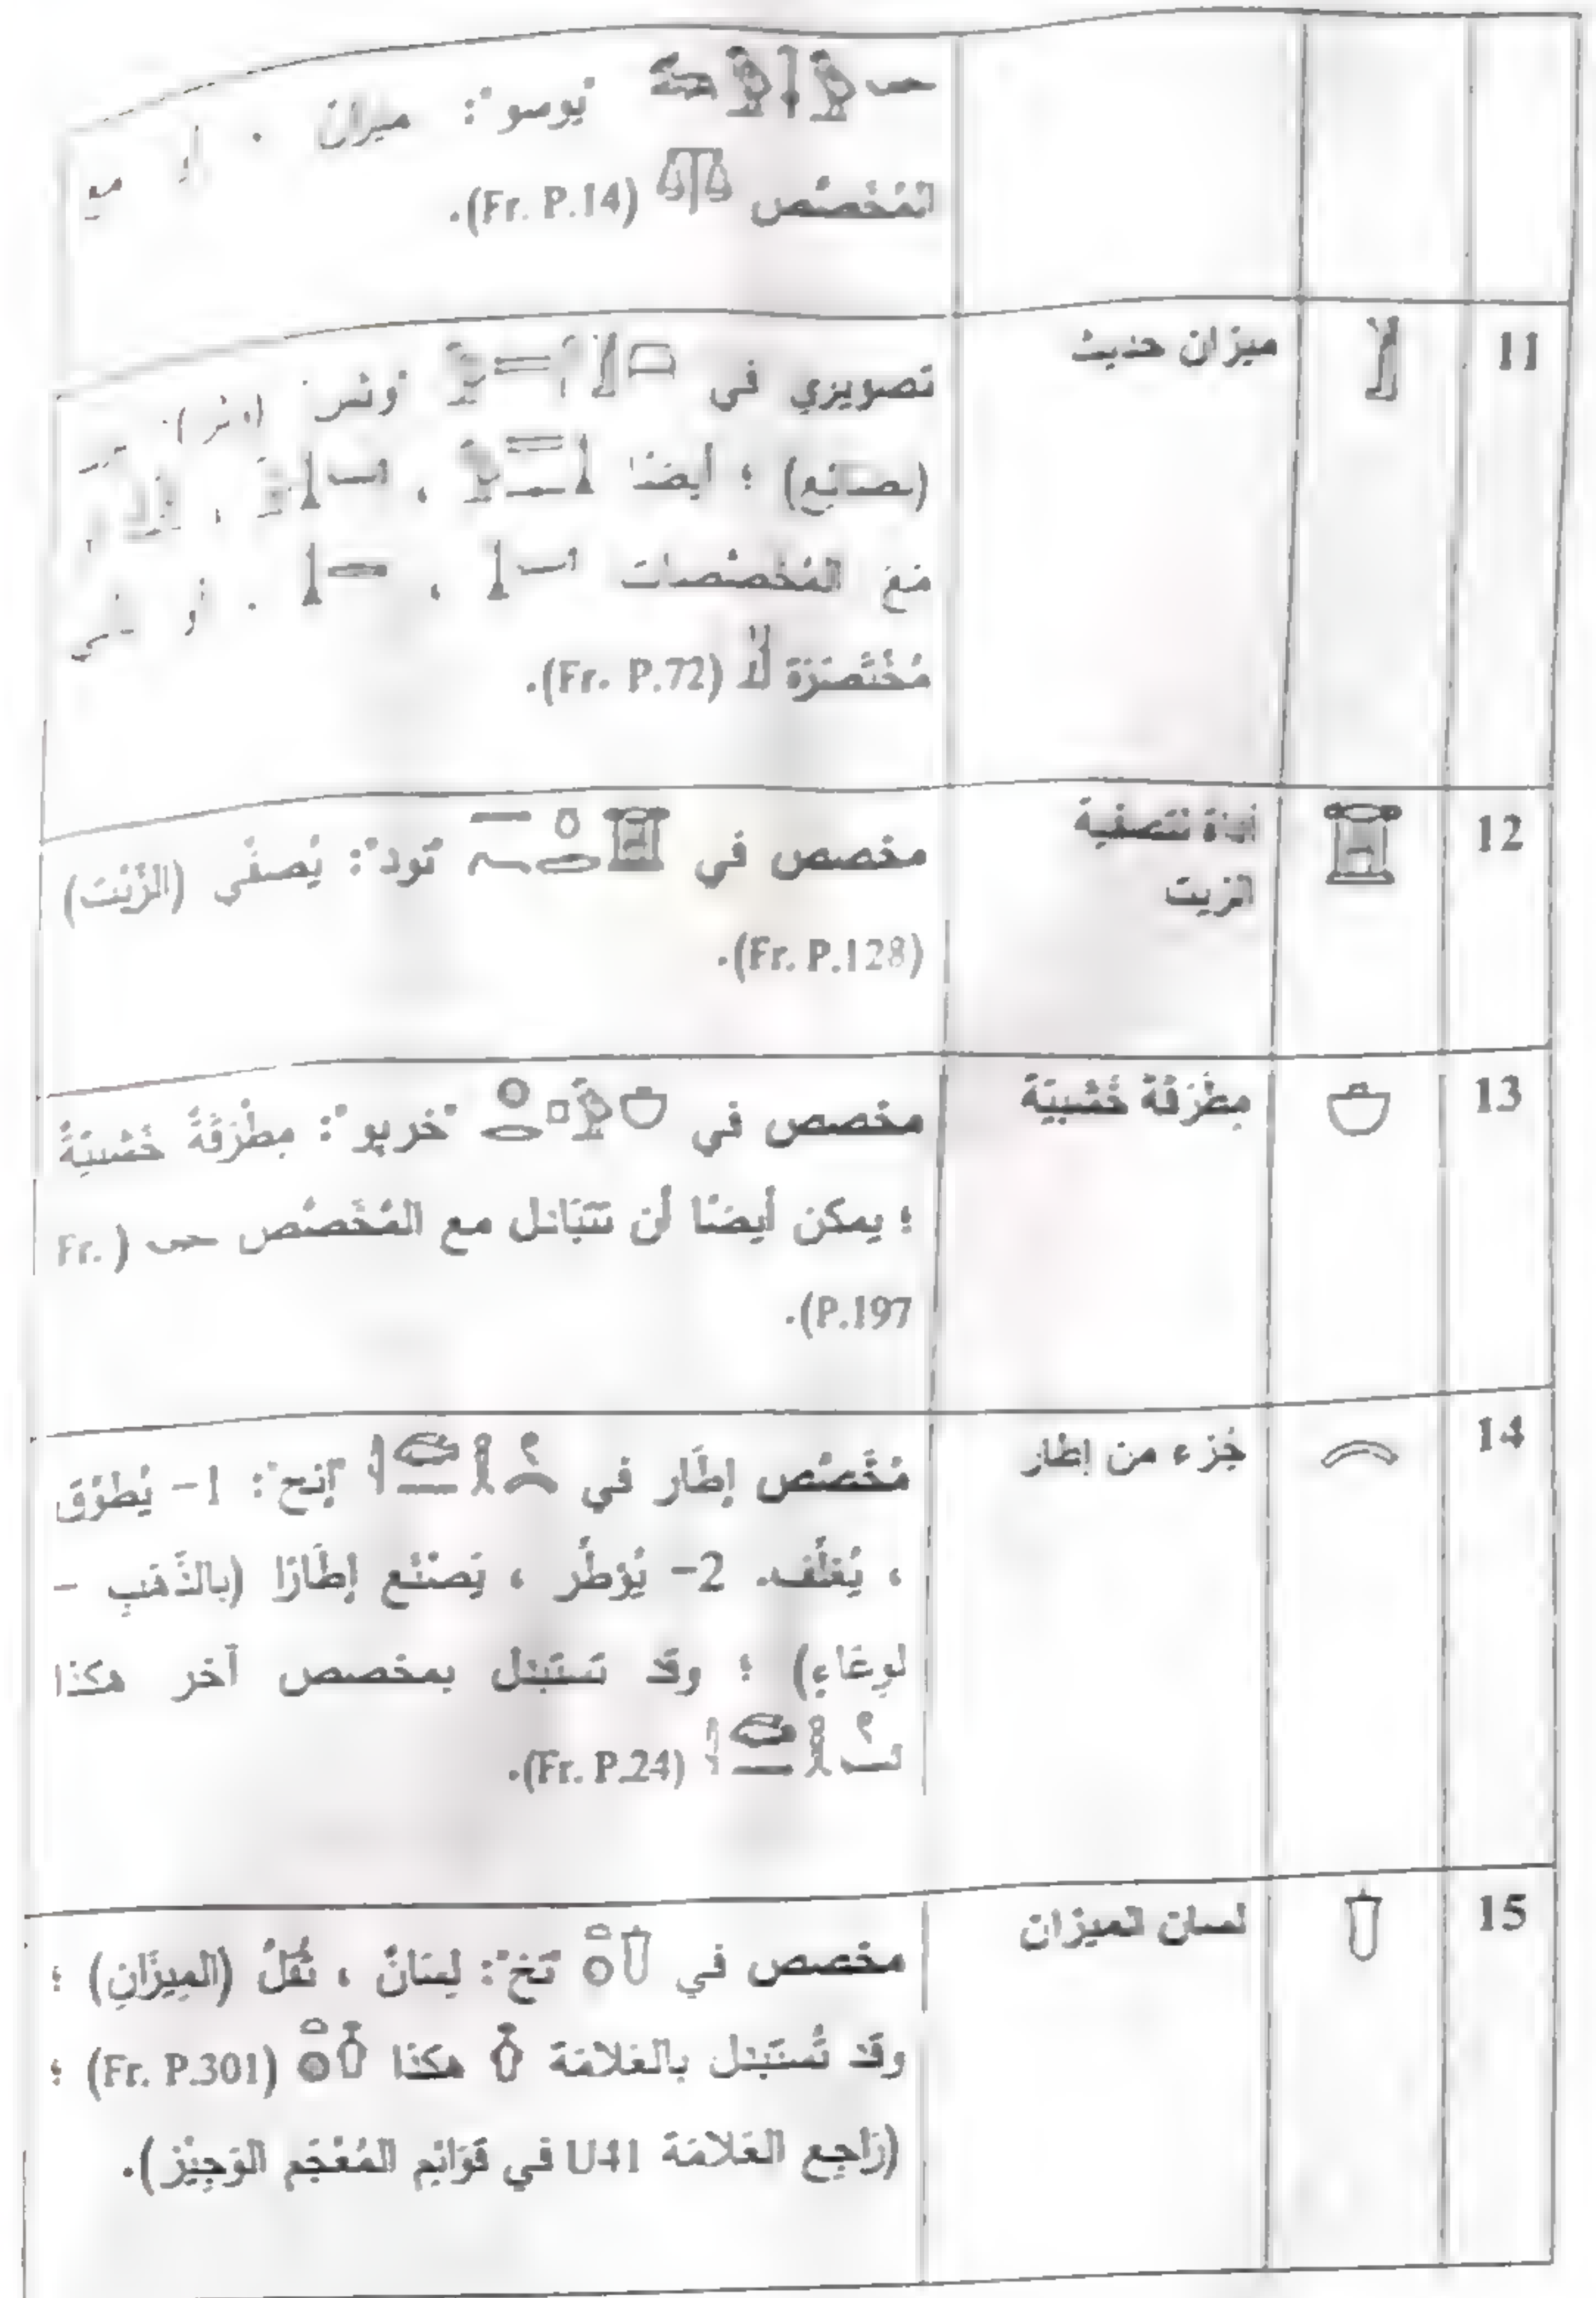 "يوسو": ميزان . أو مع
المُخَصَّص (Fr. P.14).
11 ميزان حديث
تصويري في
(بضائع) ؛ أيضًا ، ، ،
مَعَ المُخَصَّصات ، . أو في
مُخْتَصَرَة (Fr. P.72).
12 أداة لتصفية
الزيت
مخصص في "نود": يُصفِّي (الزَّيْتَ)
(Fr. P.128).
13 مِطْرَقَةٌ خَشَبِيَّةٌ
مخصص في "خربو": مِطْرَقَةٌ خَشَبِيَّةٌ
؛ يمكن أيضًا أن تتبَادل مع المُخَصَّص (Fr.
P.197).
14 جُزء من إطار
مُخَصَّص إطَار في "إنح": 1- يُطوِّق
، يُغلِّف. 2- يُؤطِّر ، يَصنَع إطَارًا (بالذَّهَبِ -
لوِعَاءٍ) ؛ وقد تستبدل بمخصص آخر هكذا
(Fr. P.24).
15 لسان الميزان
مخصص في "تخ": لِسَانُ ، ثُقلُ (المِيزَانِ) ؛
وقد تُستَبدل بالعَلامَة هكذا (Fr. P.301) ؛
(رَاجِع العَلامَة U41 في قَوَائِم المُعْجَم الوَجِيْز).